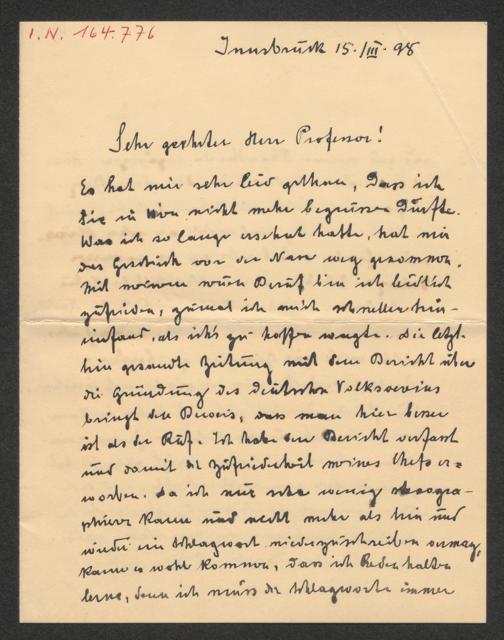 I.N. 164.776
Innsbruck 15./III. 98
Sehr geehrter Herr Professor!
Es hat mir sehr leid gethan, dass ich
Sie in Wien nicht mehr begrüssen durfte.
Was ich so lange ersehnt hatte, hat mir
das Geschick vor der Nase weg genommen.
Mit meinem neuen Beruf bin ich leidlich
zufrieden, zumal ich mich schneller hin-
einfand, als ich's zu hoffen wagte. Die letzt-
hin gesandte Zeitung mit dem Bericht über
die Gründung des deutschen Volksvereins
bringt den Beweis, dass man hier besser
ist als der Ruf. Ich habe den Bericht verfasst
und damit die Zufriedenheit meines Chefs er=
worben. Da ich nur sehr wenig stenogra-
phieren kann und nicht mehr als hin und
wieder ein Schlagwort niederzuschreiben vermag,
kann es wohl kommen, dass ich Reden halten
lerne, denn ich muss die Schlagworte immer